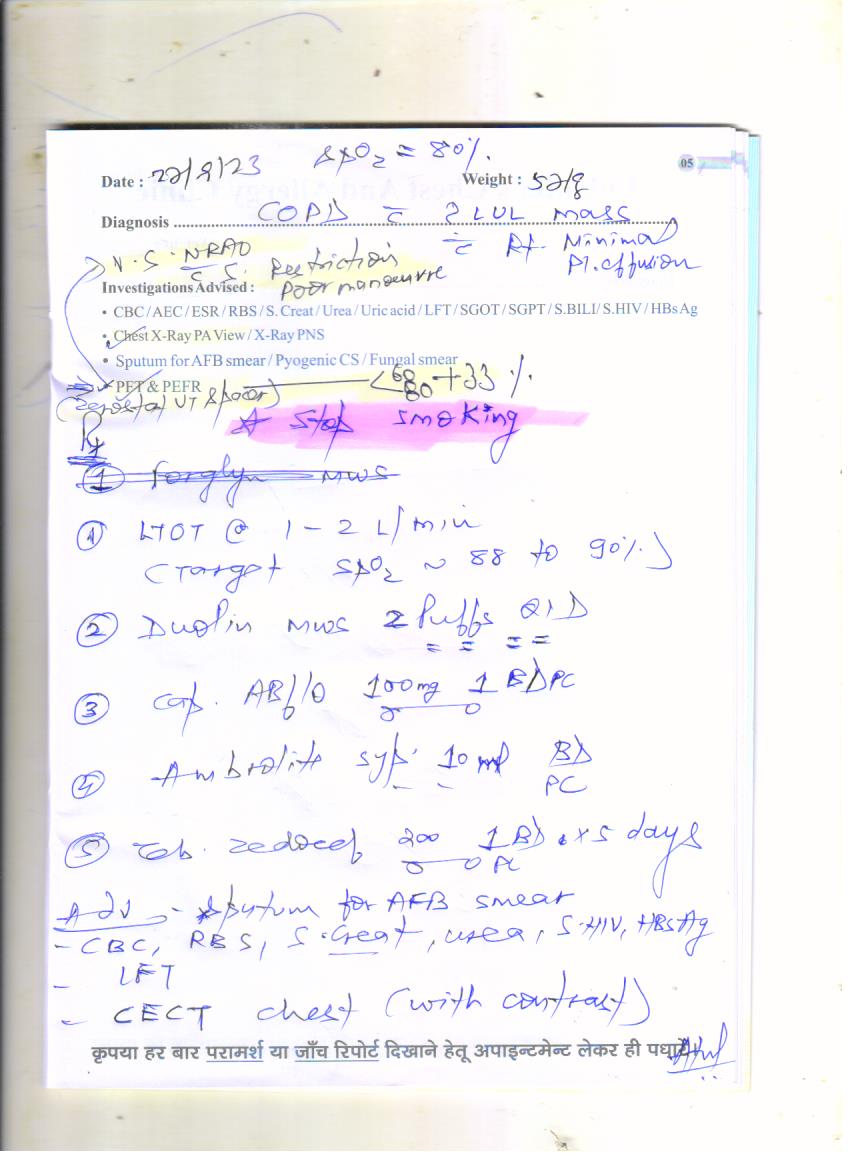 SpO₂ = 80%. 05
Date : 22/8/23 Weight : 52kg
Diagnosis COPD c̄ ? LUL mass
c̄ Rt. Minimal
Pl. effusion
c̄ S. Restriction
Poor manoeuvre
Investigations Advised :
• CBC / AEC / ESR / RBS / S. Creat / Urea / Uric acid / LFT / SGOT / SGPT / S.BILI / S.HIV / HBs Ag
• Chest X-Ray PA View / X-Ray PNS
• Sputum for AFB smear / Pyogenic CS / Fungal smear
PFT & PEFR < 60 80 +33 %.
* Stop smoking
Rx
① Forglyn MWS
① LTOT @ 1 - 2 L/min
(Target SpO₂ ~ 88 to 90%)
② Duolin MWS 2 Puffs QID
③ Cap. 100mg 1 BD PC
④ Ambrolite syp. 10 ml BD
PC
⑤ Tab. Zedocef 200 1 BD x 5 days
PC
Adv - Sputum for AFB smear
- CBC, RBS, S. Creat, urea, S.HIV, HBsAg
- LFT
- CECT chest (with contrast)
कृपया हर बार परामर्श या जाँच रिपोर्ट दिखाने हेतू अपाइन्टमेन्ट लेकर ही पधारें